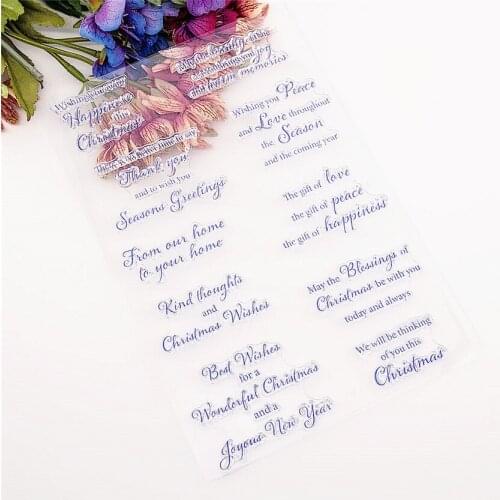 Wishing you
Happiness this
Christmas
There is no better time to say
Thank you
and to wish you
Seasons Greetings
From our home
to your home
Kind thoughts
and
Christmas Wishes
Best Wishes
for a
Wonderful Christmas
and a
Joyous New Year
joy
and warm memories
Wishing you Peace
and Love throughout
the Season
and the coming year
The gift of love
the gift of peace
the gift of happiness
May the Blessings of
Christmas be with you
today and always
We will be thinking
of you this
Christmas